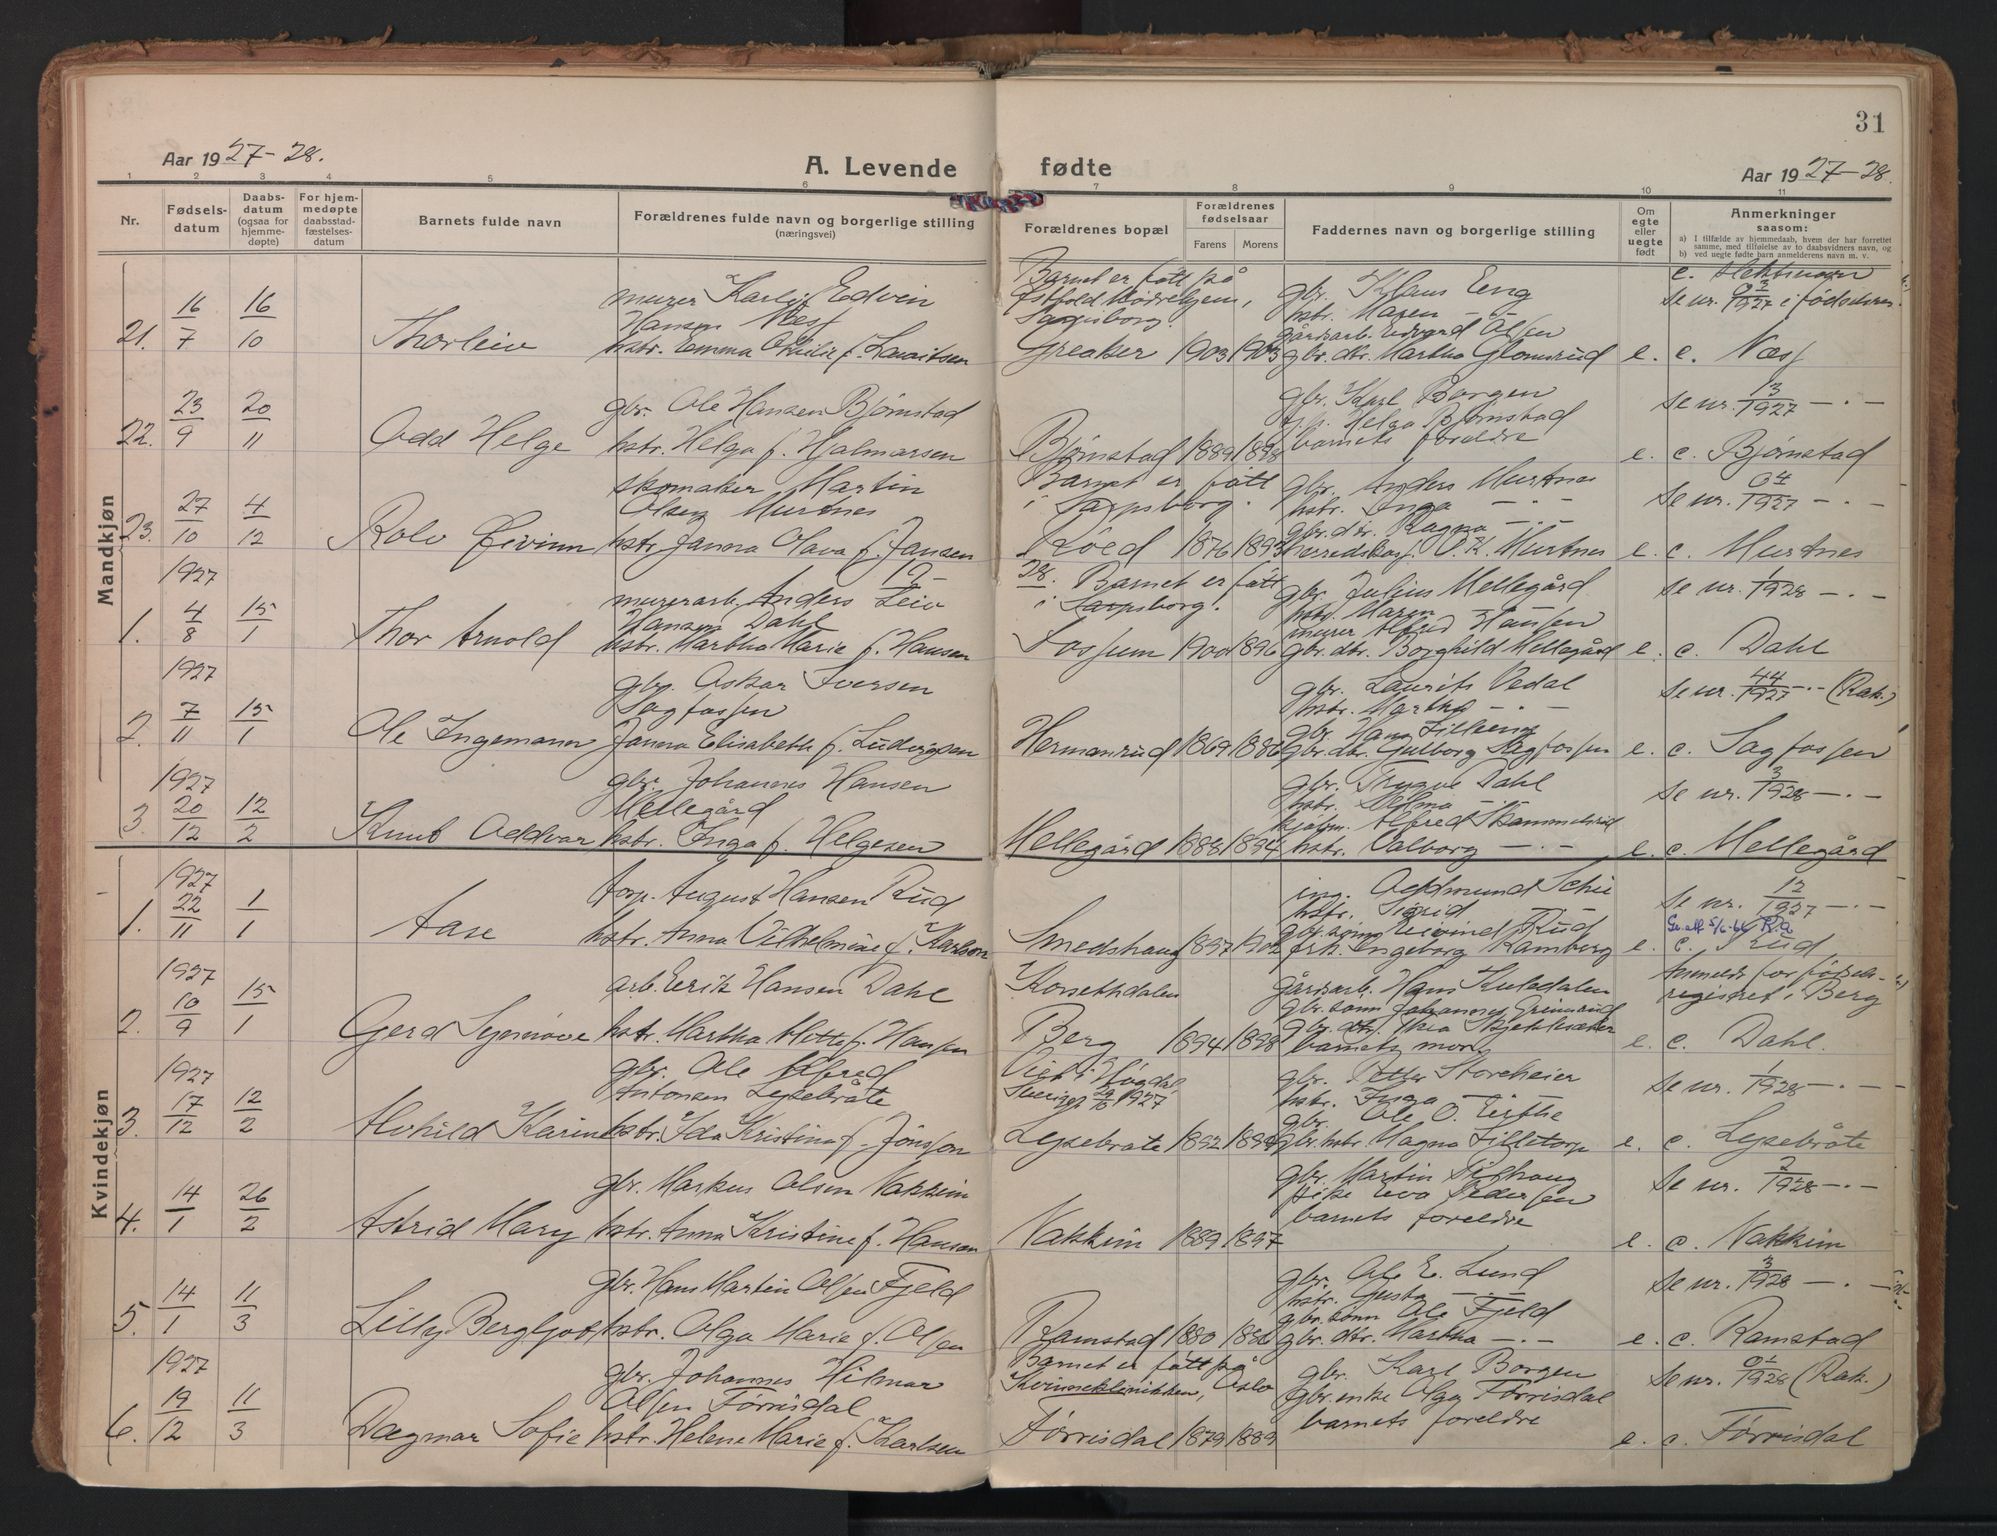 31
Aar 1927-28.
A. Levende fødte
Aar 1927-28.
1 2 3 4 5 6 7 8 9 10 11
Nr.
Fødsels-
datum
Daabs-
datum
(ogsaa for
hjemme-
døpte)
For hjem-
medøpte
daabsstad-
fæstelses-
datum
Barnets fulde navn
Forældrenes fulde navn og borgerlige stilling
(næringsvei)
Forældrenes bopæl
Forældrenes
fødselsaar
Farens Morens
Faddernes navn og borgerlige stilling
Om
egte
eller
uegte
født
Anmerkninger
saasom:
a) I tilfælde av hjemmedaab, hvem der har forrettet
samme, med tilføielse av to daabsvidners navn, og
b) ved uegte fødte barn anmelderens navn m. v.
Mandkjøn
21. 16/7 16/10 Thorleiv
murer Karl Edvin
Hansen Næss
hstr. Emma f. Lauritsen
Barnet er født på
Østfold Mødrehjem,
Sarpsborg.
Greaker 1903 1903
gbr. Klaus Eng
hstr. Maren - -
gårdsarb. Edvard Olsen
gbr. dtr. Martha Glomsrud
e. c. Næss
Se nr. 03/1927 i fødselsreg.
22. 23/9 20/11 Odd Helge
gbr. Ole Hansen Bjørnstad
hstr. Helga f. Hjalmarsen
Bjørnstad 1889 1898
gbr. Karl Borgen
Helga Bjørnstad
barnets foreldre
Se nr. 13/1927 - . -
e. c. Bjørnstad
23. 27/10 4/12 Rolv Øivinn
skomaker Martin
Olsen Murtnes
hstr. Janna Olava f. Jansen
Barnet er født
i Sarpsborg.
Røed 1876 1893
gbr. Anders Murtnes
hstr. Inga - . -
gbr. dtr. Ragna - . -
herredskass. O. K. Murtnes
Se nr. 04/1927 - . -
e. c. Murtnes
19 28.
1. 1927 4/8 15/1 Thor Arnold
murerarb. Anders Leiv
Hansen Dahl
hstr. Martha Marie f. Hansen
Barnet er født
i Sarpsborg.
Fossum 1900 1896
gbr. Julius Mellegård
hstr. Maren
murer Alfred Hansen
gbr. dtr. Borghild Mellegård
Se nr. 1/1928 - . -
e. c. Dahl
2. 1927 7/11 15/1 Ole Ingemann
gbr. Oskar Iversen
Sagfossen
Janna Elisabeth f. Ludvigsen
Hermansrud 1869 1886
gbr. Laurits Vedal
hstr. Martha - . -
gbr. Hans Lilleeng
gbr. dtr. Gulborg Sagfossen
Se nr. 44/1927 - . - (Rak.)
e. c. Sagfossen
3. 1927 20/12 12/2 Knut Oddvar
gbr. Johannes Hansen
Mellegård
hstr. Inga f. Helgesen
Mellegård 1888 1894
gbr. Trygve Dahl
hstr. Wilma -
kjøbm. Alfred Skammelsrud
hstr. Valborg - . -
Se nr. 3/1928 - . -
e. c. Mellegård
Kvindekjøn
1. 1927 22/11 1/1 Aase
forp. August Hansen Rud
hstr. Anna Vilhelmine f. Karlson
Smedshaug 1897 1902
ing. Oddmund Schie
hstr. Sigrid
Eivind Rud
frk. Ingeborg Ramberg
Se nr. 12/1927 - . -
e. c. Rud
2. 1927 10/9 15/1 Gerd Synnøve
arb. Erik Hansen Dahl
hstr. Martha Mette f. Hansen
Korsethdalen
Berg 1894 1898
gårdsarb. Hans Kuledalen
gbr. sønn Johannes Grimsrud
gbr. dtr. Thea Skjeklesæter
barnets mor
Anmeldt for fødsels-
registret i Berg
e. c. Dahl.
3. 1927 17/12 12/2 Alvhild Karin
gbr. Ole Alfred
Antonsen Lysebråte
hstr. Ida Kristina f. Jönsson
Viet i Högdal,
Sverige, 1927
Lysebråte 1892 1894
gbr. Petter Storeheier
hstr. Inga -
gbr. Ole O. Eirthe
gbr. hstr. Magna Lilletorp
Se nr. 1/1928 - . -
e. c. Lysebråte
4. 14/1 26/2 Astrid Mary
gbr. Markus Olsen Nakkim
hstr. Anna Kristine f. Hansen
Nakkim 1889 1897
gbr. Martin Stifhaug
frk. Eva Pedersen
barnets foreldre
Se nr. 2/1928 - . -
e. c. Nakkim
5. 14/1 11/3 Lilly Bergljot
gbr. Hans Martin Olsen Fjeld
hstr. Olga Marie f. Olsen
Ramstad 1880 1886
gbr. Ole E. Lund
hstr. Gusta - . -
gbr. sønn Ole Fjeld
gbr. dtr. Martha - . -
Se nr. 3/1928 - . -
e. c. Ramstad
6. 1927 19/12 11/3 Dagmar Sofie
gbr. Johannes Hilmar
Olsen Tørrisdal
hstr. Helene Marie f. Karlsen
Barnet er født på
Kvinneklinikken, Oslo
Tørrisdal 1879 1889
gbr. Karl Borgen
gbr. enke Olga Tørrisdal
barnets foreldre
Se nr. 01/1928 (Rak.)
e. c. Tørrisdal